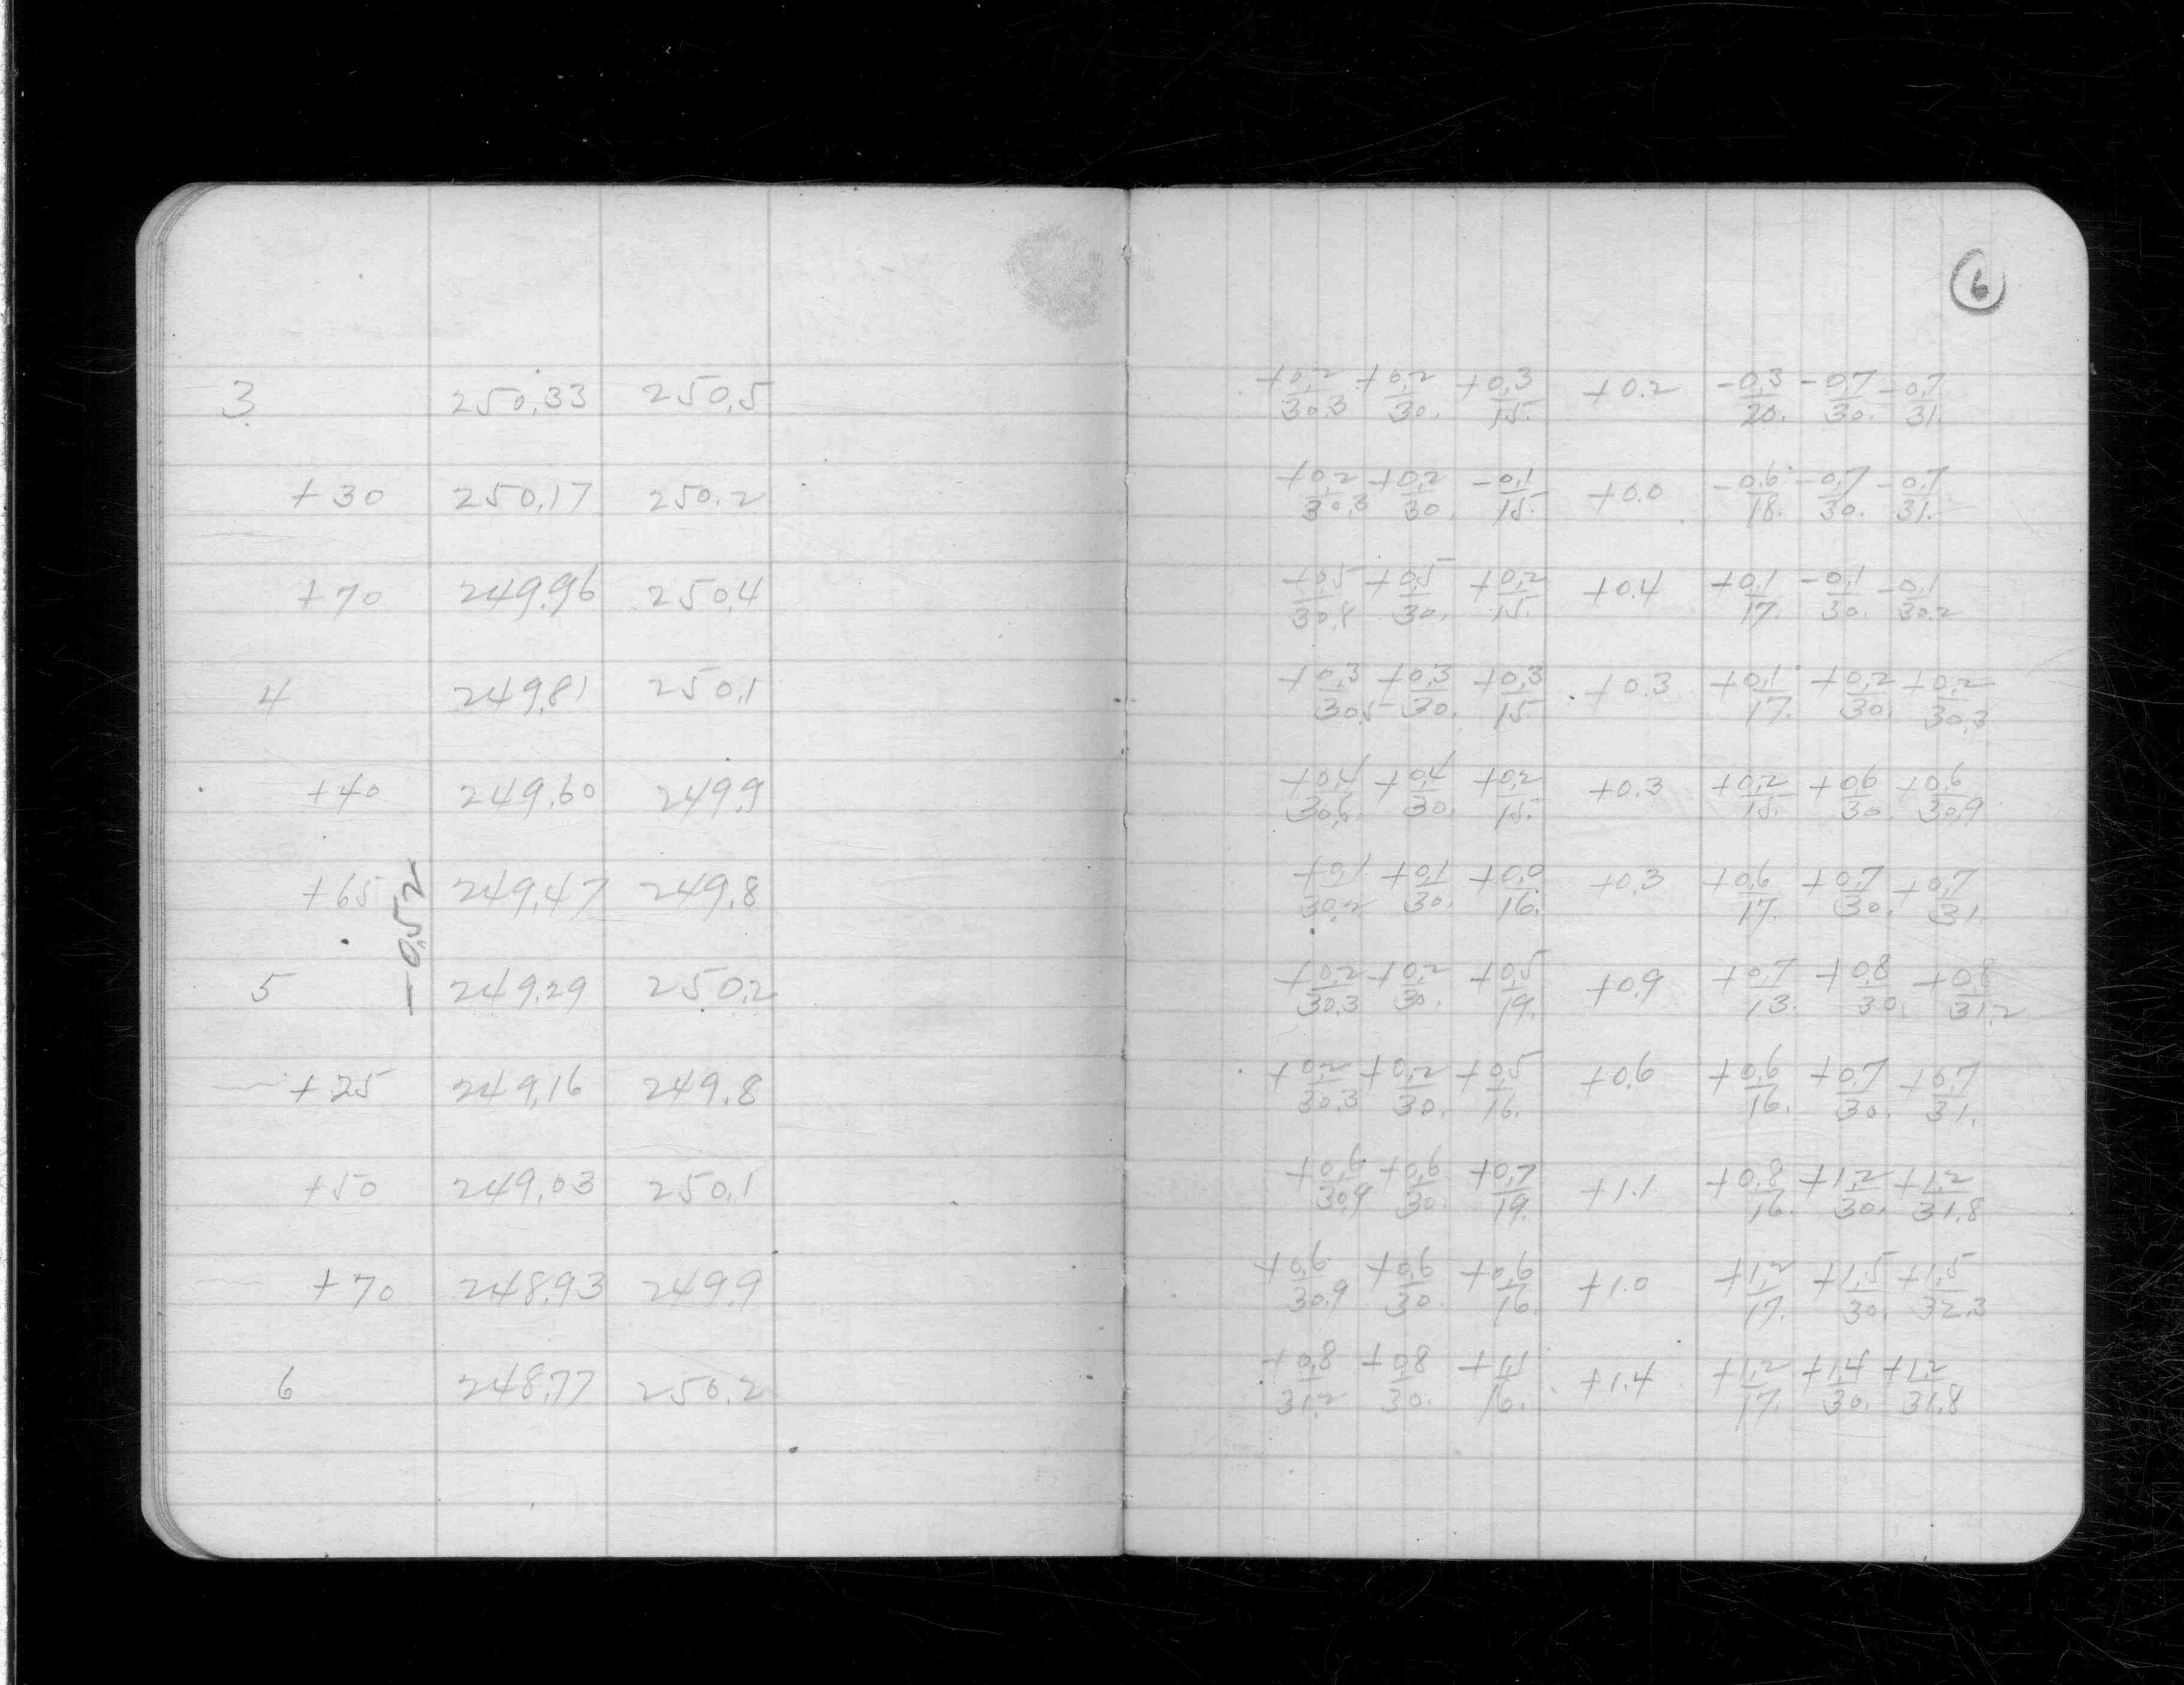 6
3 250.33 250.5 +0.2/30.3 +0.2/30. +0.3/15. +0.2 -0.3/20. -0.7/30. -0.7/31.
+30 250.17 250.2 +0.2/30.3 +0.2/30. -0.1/15. +0.0 -0.6/18. -0.7/30. -0.7/31.
+70 249.96 250.4 +0.5/30.8 +0.5/30. +0.2/15. +0.4 +0.1/17. -0.1/30. -0.1/30.2
4 249.81 250.1 +0.3/30.5 +0.3/30. +0.3/15. +0.3 +0.1/17. +0.2/30. +0.2/30.3
+40 249.60 249.9 +0.4/30.6 +0.4/30. +0.2/15. +0.3 +0.2/15. +0.6/30. +0.6/30.9
+65 249.47 249.8 +0.1/30.2 +0.1/30. +0.0/16. +0.3 +0.6/17. +0.7/30. +0.7/31.
-0.52
5 249.29 250.2 +0.2/30.3 +0.2/30. +0.5/19. +0.9 +0.7/13. +0.8/30. +0.8/31.2
+25 249.16 249.8 +0.2/30.3 +0.2/30. +0.5/16. +0.6 +0.6/16. +0.7/30. +0.7/31.
+50 249.03 250.1 +0.6/30.9 +0.6/30. +0.7/19. +1.1 +0.8/16. +1.2/30. +1.2/31.8
+70 248.93 249.9 +0.6/30.9 +0.6/30. +0.6/16. +1.0 +1.2/17. +1.5/30. +1.5/32.3
6 248.77 250.2 +0.8/31.2 +0.8/30. +1.1/16. +1.4 +1.2/17. +1.4/30. +1.2/31.8